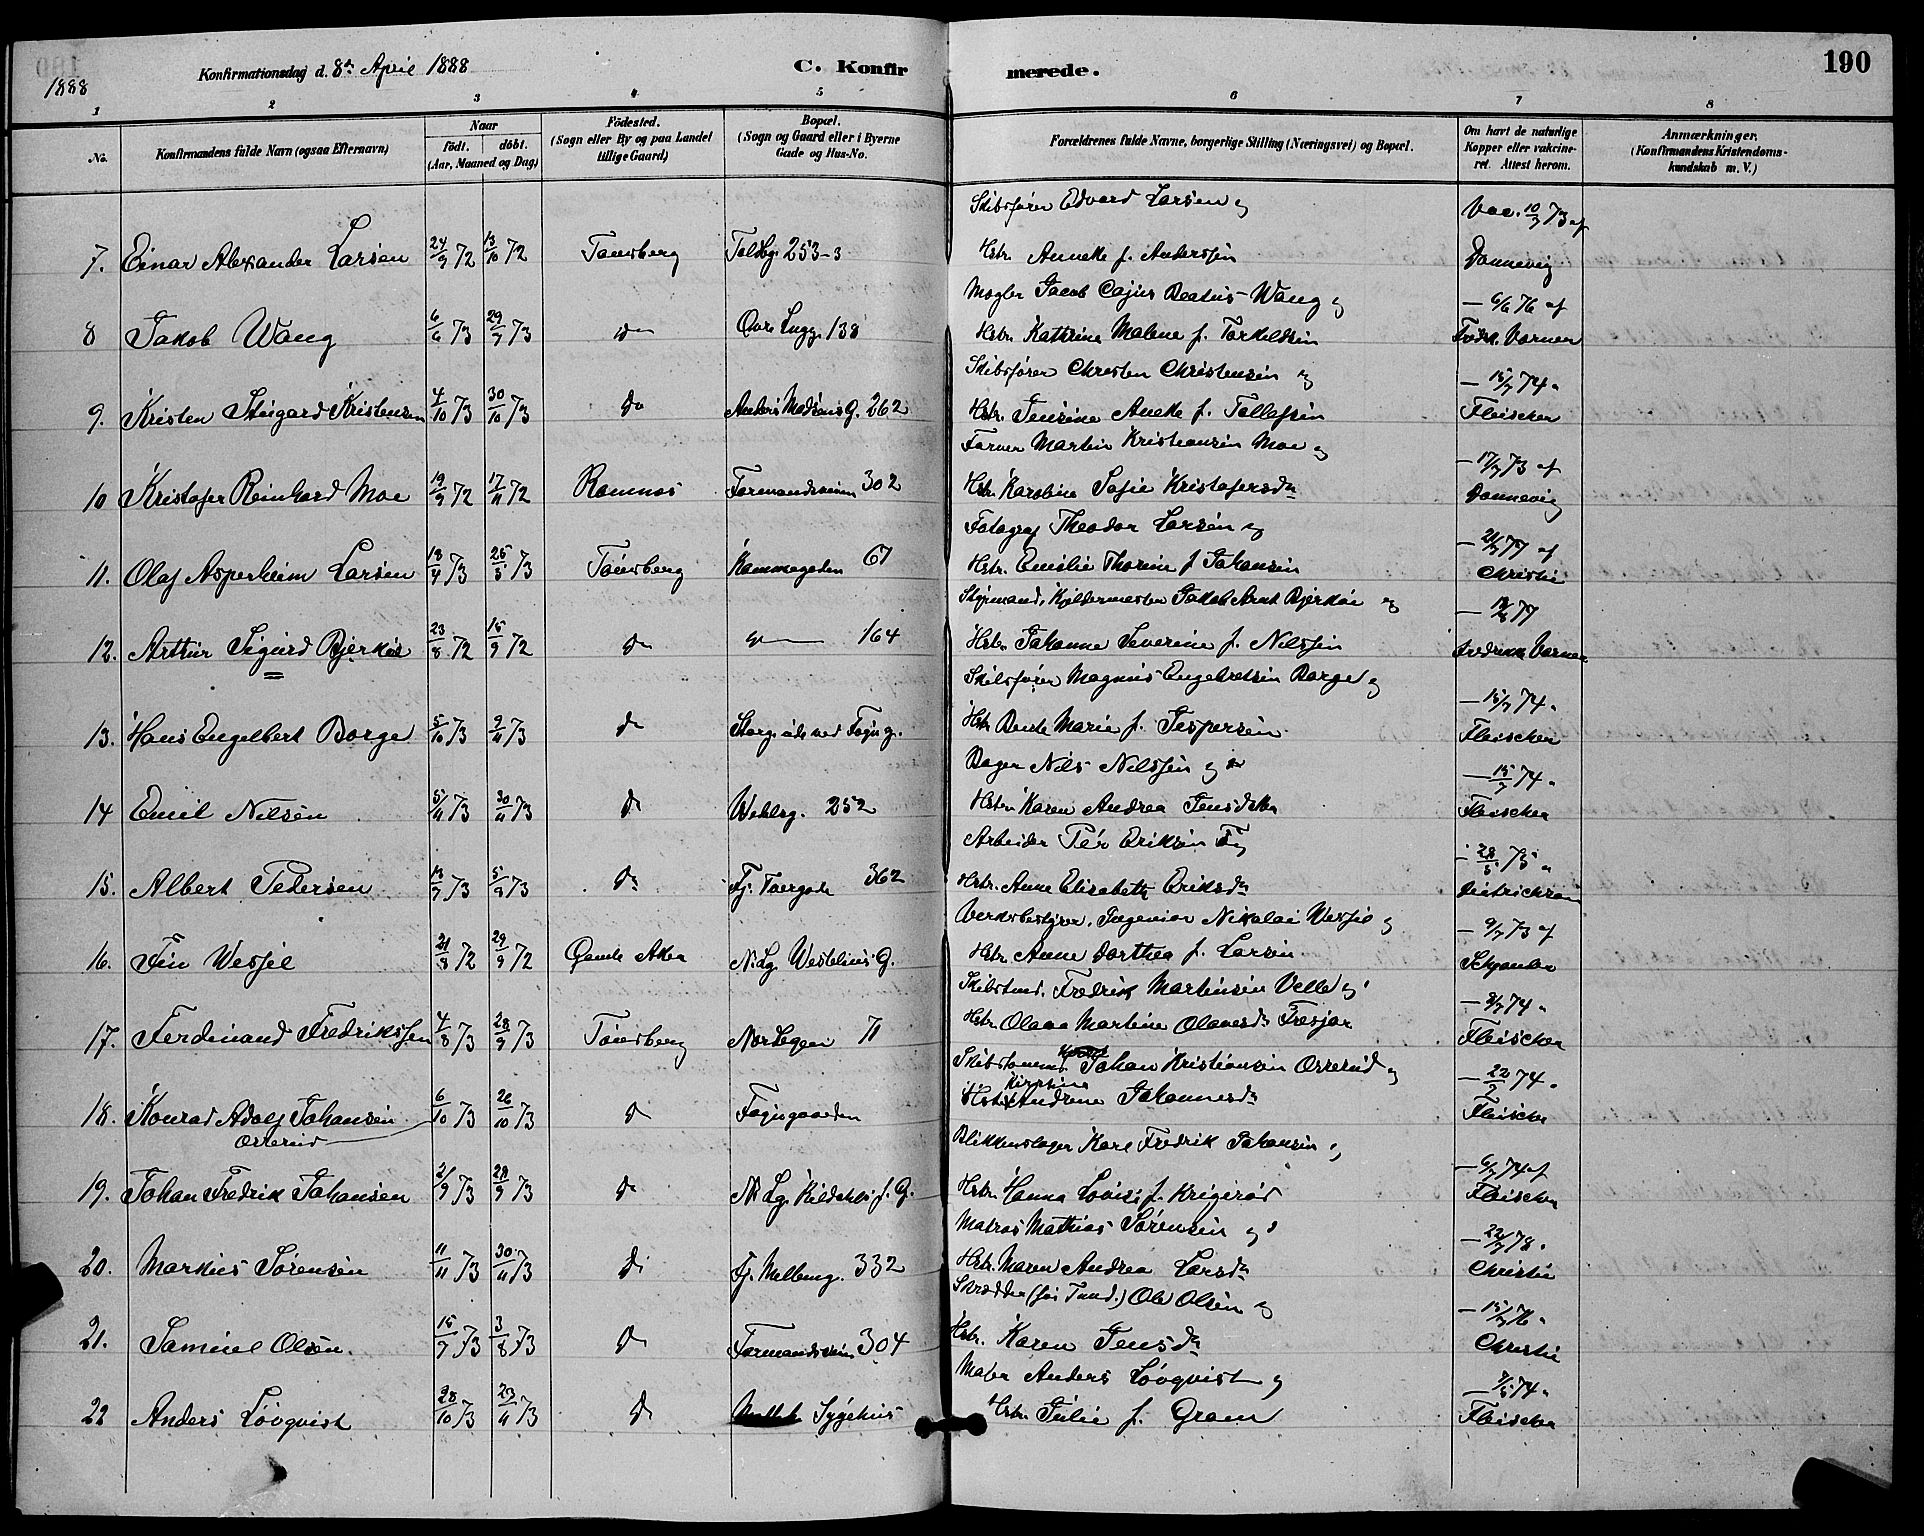 190
1888
Konfirmationsdag d. 8de April 1888
C. Konfirmerede.
1 2 3 4 5 6 7 8
No.
Konfirmandens fulde Navn (ogsaa Efternavn)
Naar
födt. döbt.
(Aar, Maaned og Dag)
Födested.
(Sogn eller By og paa Landet
tillige Gaard)
Bopæl.
(Sogn og Gaard eller i Byerne
Gade og Hus-No.
Forældrenes fulde Navne, borgerlige Stilling (Næringsvei) og Bopæl.
Om havt de naturlige
Kopper eller vakcine-
ret. Attest herom.
Anmærkninger.
(Konfirmandens Kristendoms-
kundskab m. V.)
Skibsfører Edvard Larsen og Vac. 10/7 73 af
7. Einar Alexander Larsen 24/9 72 13/10 72 Tønsberg Toldbg. 253-3 Hstr. Annette f. Anderssen Dannevig
Mægler Jacob Cajus Beatus Wang og — 6/6 76 af
8 Jakob Wang 6/6 73 29/7 73 do Øvre Langg. 138 Hstr. Kathrine Malene f. Torkeldsen Fredk. Varnen
Skibsfører Christen Christensen og — 15/7 74 "
9. Kristen Stengard Kristensen 4/10 73 30/10 73 do Anders Madsens G. 262 Hstr. Jensine Anette f. Tollefsen Fleischer
Farver Martin Kristiansen Moe og — 17/7 73 af
10 Kristofer Reinhard Moe 19/9 72 17/11 72 Ramnæs Farmandsveien 302 Hstr. Karoline Sofie Kristofersdr Dannevig
Fotograf Theodor Larsen og — 21/7 77 af
11. Olaf Asperheim Larsen 18/4 73 25/5 73 Tønsberg Kammegaden 67 Hstr. Emilie Thorine f Johansen Christie
Styrmand, Kjeldermester Jakob Arnt Bjerkøe og
12. Arthur Sigurd Bjerkøe 23/8 72 15/9 72 do 164 Hstr. Johanne Severine f. Nilssen Fredrikk Varnen
Skibsfører Magnus Engebretsen Borge og — 15/7 74 "
13. Hans Engelbert Borge 5/10 73 9/11 73 do Storg. Hstr. Bente Marie f. Jespersen Fleischer
Bager Nils Nilssen og — 15/7 74 "
14 Emil Nilsen 5/11 73 30/11 73 do 252 Hstr. Karen Andrea Fleischer
Arbeider Per Eriksen og — 28/5 75 "
15. Albert Pedersen 13/7 73 5/8 73 do Fj. Tvergade 362 Hstr. Anne Elisabeth Eriksdr Dietrichson
Værksbestyrer, Ingeniør Nikolai Wessel og — 9/7 73 af
16. Fin Wessel 21/8 72 29/9 72 Gamle Aker N. Lg. Westbyes G. Hstr. Anne Dorthea f. Larsen
Skibstmd. Fredrik Martinsen Velle og — 8/7 74 "
17. Ferdinand Fredrikssen 4/8 73 28/9 73 Tønsberg Nordbyen 71 Hstr. Olava Martine Olavesdr Fresjar Fleischer
Skibstømmd. Johan Kristiansen Orrerud og — 22/2 74 "
Kirstine
18. Konrad Adolf Johansen 6/10 73 26/10 73 do Fagsgaarden Hstr. Andrine Johannesdr Fleischer
Orrerud
Blikkenslager Karl Fredrik Johansen og — 6/7 74 af
19. Johan Fredrik Johansen 2/9 73 28/9 73 do Hstr. Hanna Lovise f. Krigerød Fleischer
Matros Mathias Sørensen og — 22/7 78 "
20. Markus Sørensen 11/11 73 30/11 73 do Fj. Mellemg. 332 Hstr. Maren Andrea Larsdr Christie
Skrædder (før Tmd.) Ole Olsen og — 15/7 76 "
21. Samuel Olsen 15/7 73 3/8 73 do Farmandsveien 304 Hstr. Karen Jensdr Christie
Maler Anders Løvqvist og — 7/5 74 "
22 Anders Løvqvist 28/10 73 23/11 73 do Sygehus Hstr. Julie f. Gram Fleischer